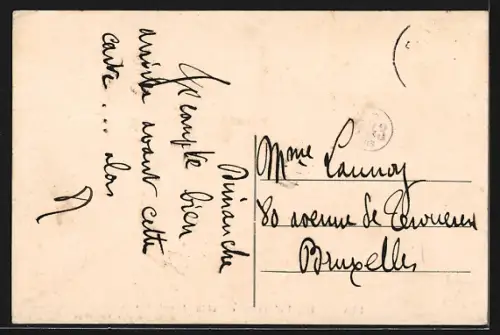 Dimanche
Je compte bien
arriver avant cette
carte... alors
Mme Lannoy
80 avenue de Tervueren
Bruxelles